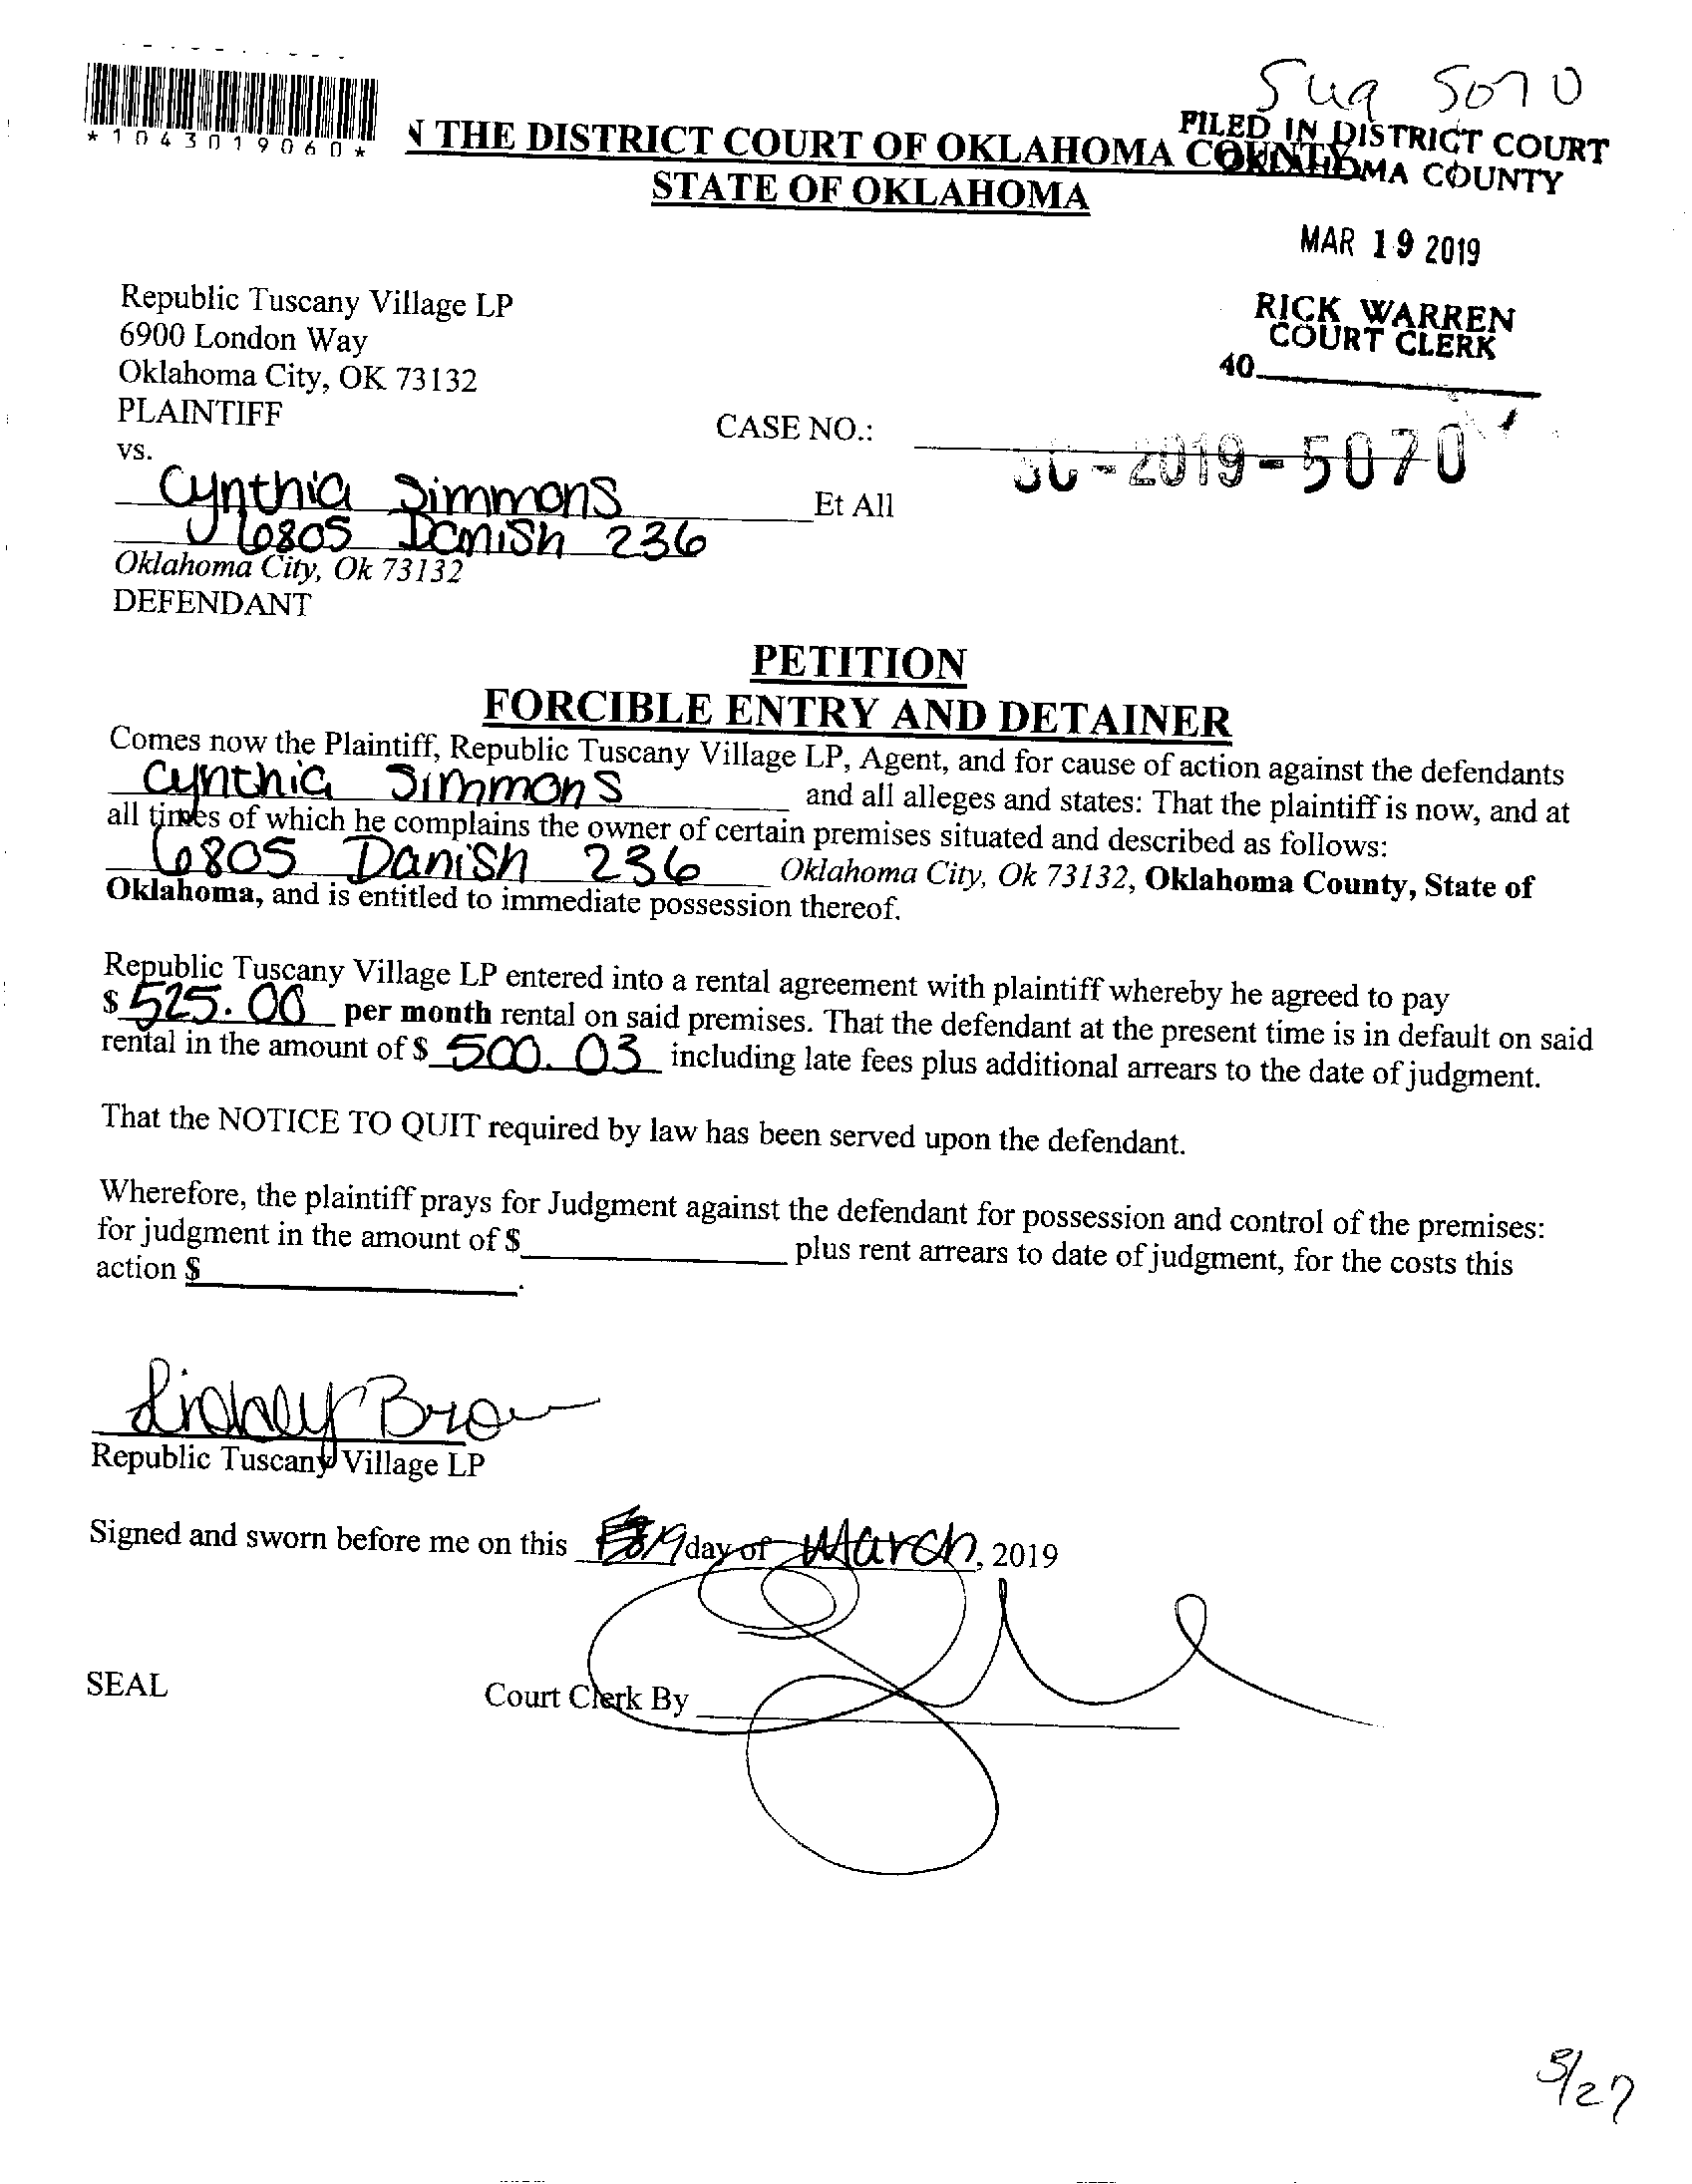 5070
*1043019060*
THE DISTRICT COURT OF OKLAHOMA COUNTY
STATE OF OKLAHOMA
FILED IN DISTRICT COURT
OKLAHOMA COUNTY
MAR 19 2019
RICK WARREN
COURT CLERK
40
Republic Tuscany Village LP
6900 London Way
Oklahoma City, OK 73132
PLAINTIFF
CASE NO.: SC-2019-5070
vs.
Cynthia Simmons Et All
6805 Danish 236
Oklahoma City, Ok 73132
DEFENDANT
PETITION
FORCIBLE ENTRY AND DETAINER
Comes now the Plaintiff, Republic Tuscany Village LP, Agent, and for cause of action against the defendants
Cynthia Simmons and all alleges and states: That the plaintiff is now, and at
all times of which he complains the owner of certain premises situated and described as follows:
6805 Danish 236 Oklahoma City, Ok 73132, Oklahoma County, State of
Oklahoma, and is entitled to immediate possession thereof.
Republic Tuscany Village LP entered into a rental agreement with plaintiff whereby he agreed to pay
$ 525.00 per month rental on said premises. That the defendant at the present time is in default on said
rental in the amount of $ 500.03 including late fees plus additional arrears to the date of judgment.
That the NOTICE TO QUIT required by law has been served upon the defendant.
Wherefore, the plaintiff prays for Judgment against the defendant for possession and control of the premises:
for judgment in the amount of $ plus rent arrears to date of judgment, for the costs this
action $ .
Republic Tuscany Village LP
Signed and sworn before me on this 19 day of March, 2019
SEAL
Court Clerk By
3/27